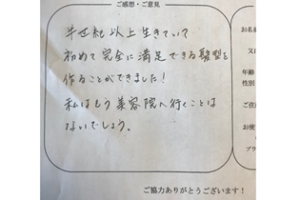 ご感想・ご意見
半世紀以上生きていて
初めて完全に満足できる髪型を
作ることができました!
私はもう美容院へ行くことは
ないでしょう。
お名
年齢
性別
ご協力ありがとうございます!